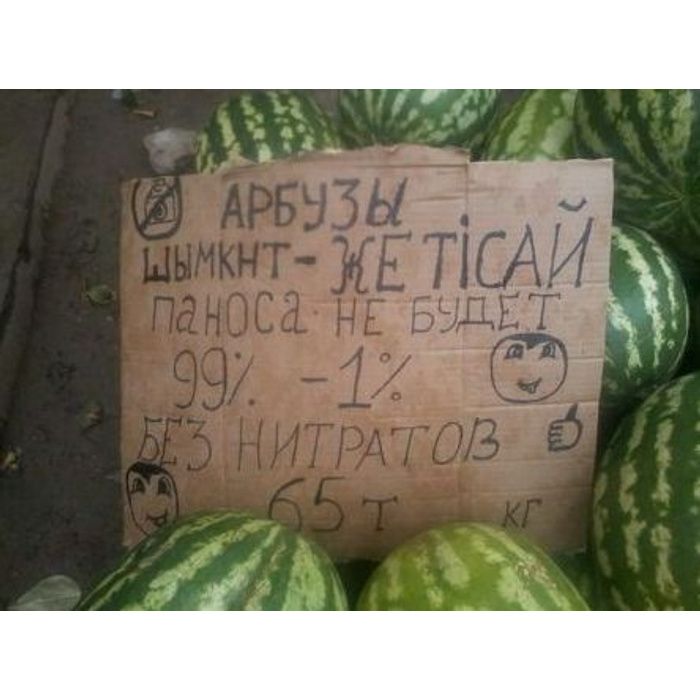 АРБУЗЫ
ШЫМКНТ-ЖЕТІСАЙ
ПАНОСА НЕ БУДЕТ
99% -1%
БЕЗ НИТРАТОВ
65 Т КГ